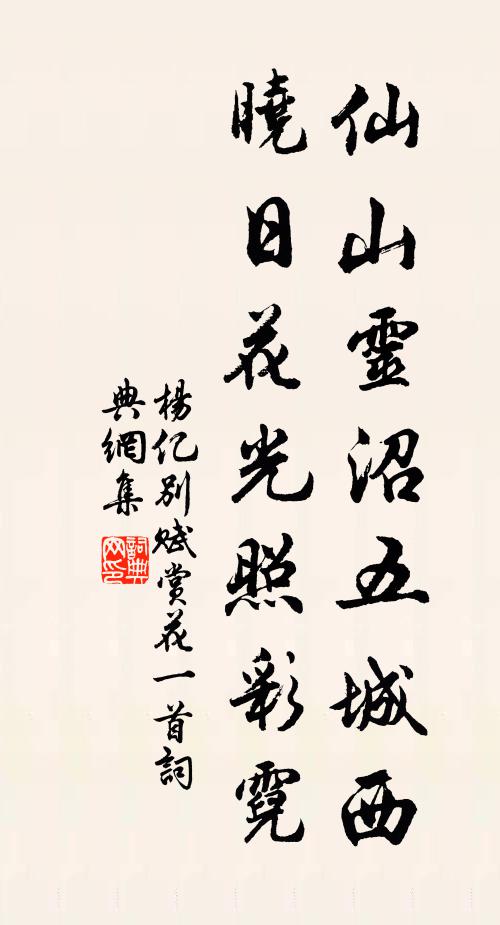 仙山靈沼五城西
曉日花光照彩霓
楊亿別賦賞花一首詞
典網集
詞典
网印